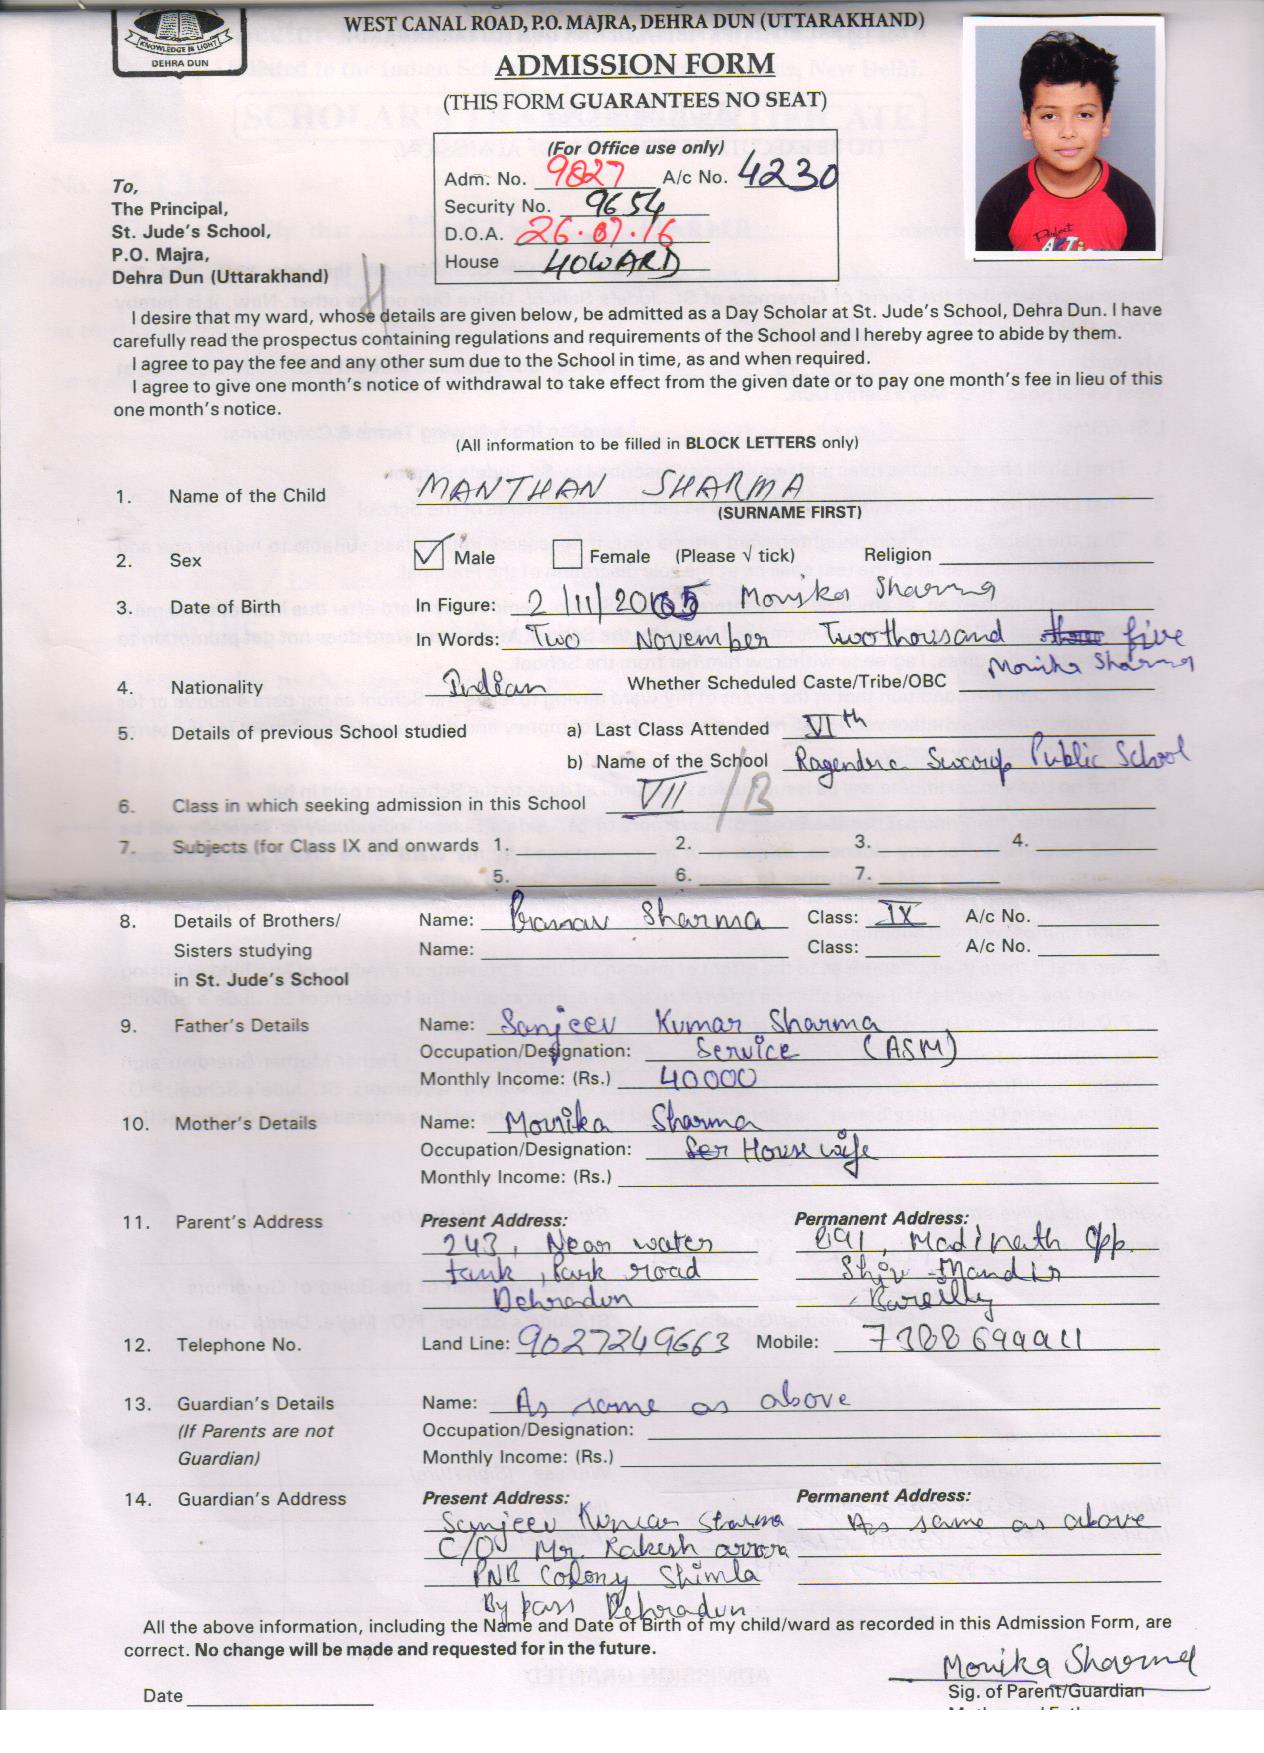 WEST CANAL ROAD, P.O. MAJRA, DEHRA DUN (UTTARAKHAND)
KNOWLEDGE IS LIGHT
DEHRA DUN
ADMISSION FORM
(THIS FORM GUARANTEES NO SEAT)
(For Office use only)
Adm. No. 9827 A/c No. 4230
Security No. 9654
D.O.A. 26.07.16
House HOWARD
To,
The Principal,
St. Jude's School,
P.O. Majra,
Dehra Dun (Uttarakhand)
H
Perfect
I desire that my ward, whose details are given below, be admitted as a Day Scholar at St. Jude's School, Dehra Dun. I have
carefully read the prospectus containing regulations and requirements of the School and I hereby agree to abide by them.
I agree to pay the fee and any other sum due to the School in time, as and when required.
I agree to give one month's notice of withdrawal to take effect from the given date or to pay one month's fee in lieu of this
one month's notice.
(All information to be filled in BLOCK LETTERS only)
1. Name of the Child MANTHAN SHARMA
(SURNAME FIRST)
2. Sex Male Female (Please √ tick) Religion
3. Date of Birth In Figure: 2/11/2005 Monika Sharma
In Words: Two November Twothousand five
Monika Sharma
4. Nationality Indian Whether Scheduled Caste/Tribe/OBC
5. Details of previous School studied a) Last Class Attended VIth
b) Name of the School Ragendra Swarup Public School
6. Class in which seeking admission in this School VII /B
7. Subjects (for Class IX and onwards 1. 2. 3. 4.
5. 6. 7.
8. Details of Brothers/ Name: Pranav Sharma Class: IX A/c No.
Sisters studying Name: Class: A/c No.
in St. Jude's School
9. Father's Details Name: Sanjeev Kumar Sharma
Occupation/Designation: Service (ASM)
Monthly Income: (Rs.) 40000
10. Mother's Details Name: Monika Sharma
Occupation/Designation: Ser House wife
Monthly Income: (Rs.)
11. Parent's Address Present Address: Permanent Address:
243, Near water 891, Madinath Opp.
tank, Park road Shiv Mandir
Dehradun Bareilly
12. Telephone No. Land Line: 9027249663 Mobile: 7388699911
13. Guardian's Details Name: As same as above
(If Parents are not Occupation/Designation:
Guardian) Monthly Income: (Rs.)
14. Guardian's Address Present Address: Permanent Address:
Sanjeev Kumar Sharma As same as above
C/O Mr. Rakesh arrora
PNB Colony Shimla
By pass Dehradun
All the above information, including the Name and Date of Birth of my child/ward as recorded in this Admission Form, are
correct. No change will be made and requested for in the future.
Monika Sharma
Date Sig. of Parent/Guardian